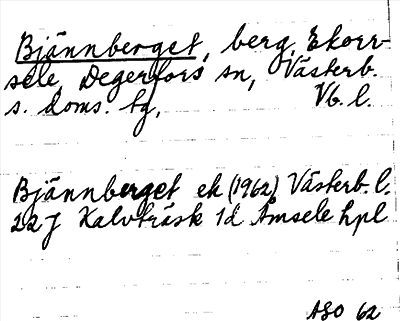 Bjännberget, berg, Ekorr-
sele, Degerfors sn, Västerb.
s. doms. tg, Vb. l.
Bjännberget ek (1962) Västerb. l.
22J Kalvträsk 1d Åmsele hpl
ASO 62